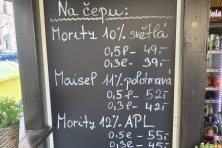 Na čepu:
Mority 10% světlá
0,5l - 49,-
0,3l - 39,-
Maisel 11% polotmavá
0,5l - 52,-
0,3l - 42,-
Mority 12% APL
0,5l - 55,-
0,3l - 45,-